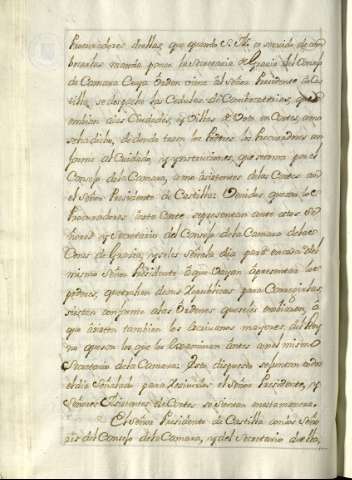 Procuradores de ellas, que quando S. M. es servido de con-
bocarlas manda poner la Secretaria de Gracia del Consejo
de Camara Cuya orden viene al señor Presidente de Cas-
tilla, se despachan las Cedulas de Combocatorias, que
embian a las Ciudades, y Villas de Voto en Cortes, como
se ha dicho, de donde traen los Poderes los Procuradores con
forme al Cuidado, y ynstrucciones, que se embian por el
Consejo de la Camara, como asistentes de las Cortes con
el Señor Presidente de Castilla: Venidos que son los
Procuradores a esta Corte se presentan ante estos Se-
ñores y Secretario del Consejo de la Camara de la
Cortes de Gracia, y se les señala dia para en casa del
mismo Señor Presidente à que vayan à presentar los
poderes, que traen de sus Republicas para Conocer si
vienen conforme a las Ordenes que se les embiaron, à
que asisten tambien los escrivanos mayores del Rey
no que son los que los examinan antes con el mismo
Secretario de la Camara. Esto dispuesto se juntan todos
el dia Señalado para Resivirlos el Señor Presidente, y
Señores Asistentes de Cortes se sientan en esta manera.
El Señor Presidente de Castilla con los Seño-
res del Consejo de la Camara, y del Secretario de ella,